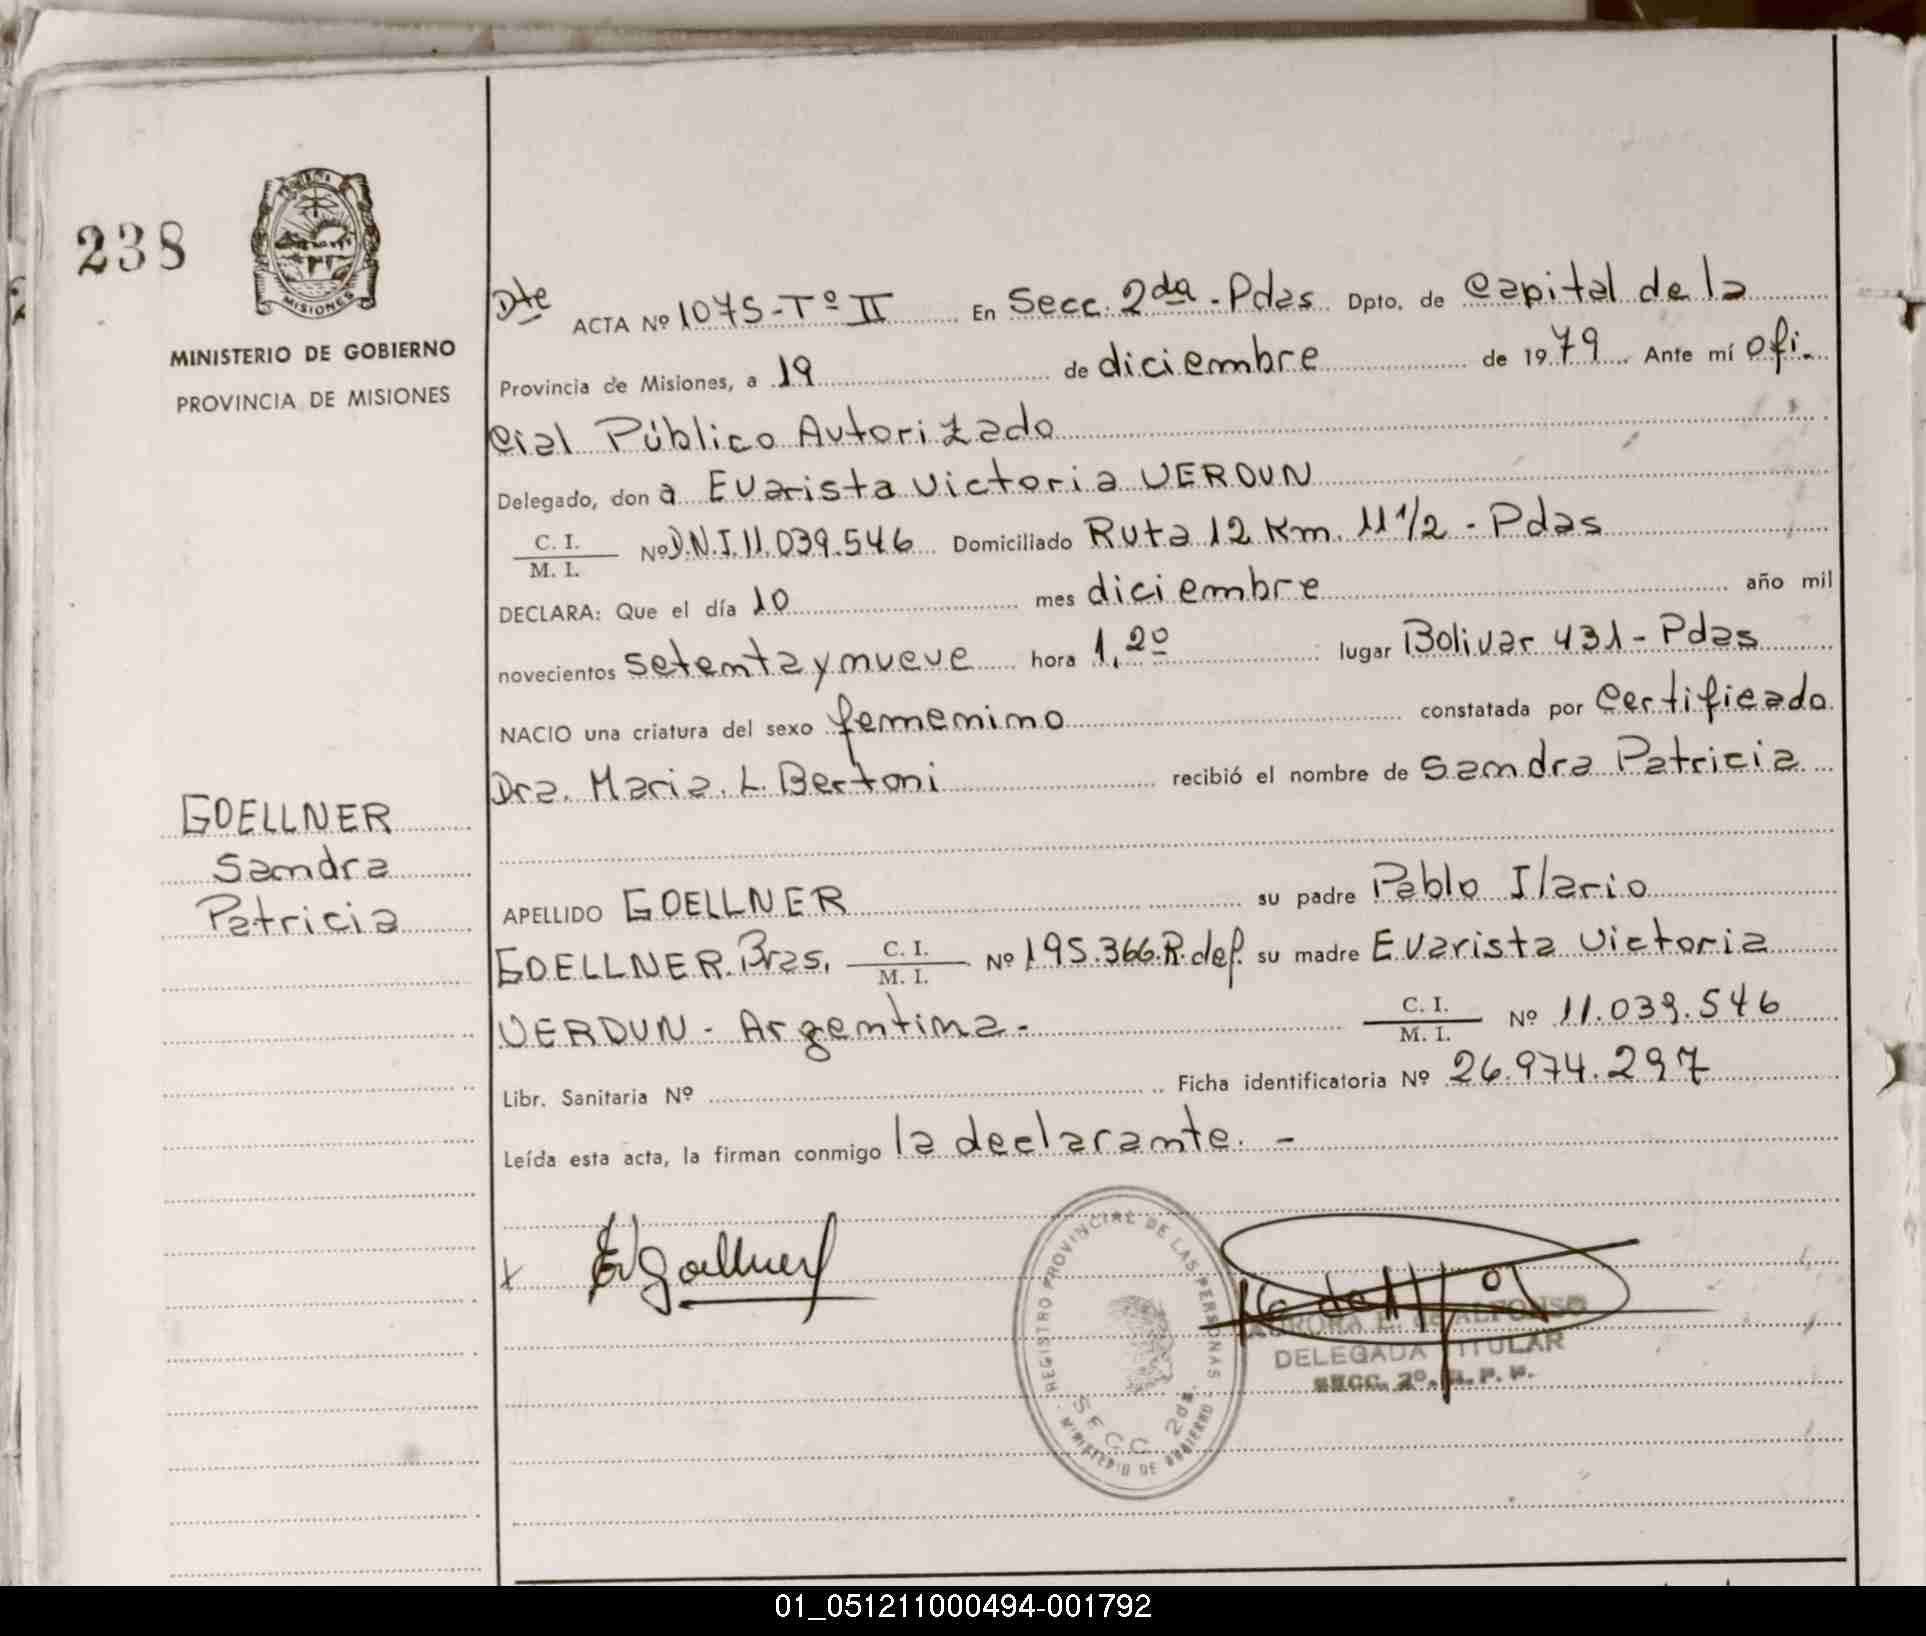 238
PROVINCIA
MISIONES
MINISTERIO DE GOBIERNO
PROVINCIA DE MISIONES
Dte ACTA Nº 1075-Tº II En Secc. 2da - Pdas Dpto. de Capital de la
Provincia de Misiones, a 19 de diciembre de 1979 Ante mí ofi-
cial Público Autorizado
Delegado, don a Evarista Victoria VERDUN
C. I.
M. I. Nº D.N.I. 11.039.546 Domiciliado Ruta 12 Km. 11 1/2 - Pdas
DECLARA: Que el día 10 mes diciembre año mil
novecientos setenta y nueve hora 1,20 lugar Bolivar 431 - Pdas
NACIO una criatura del sexo femenino constatada por Certificado
Dra. Maria. L. Bertoni recibió el nombre de Sandra Patricia
GOELLNER
Sandra
Patricia
APELLIDO GOELLNER su padre Pablo Ilario
GOELLNER. Bras. C. I.
M. I. Nº 195.366.R.def. su madre Evarista Victoria
VERDUN - Argentina - C. I.
M. I. Nº 11.039.546
Libr. Sanitaria Nº Ficha identificatoria Nº 26.974.297
Leída esta acta, la firman conmigo la declarante. -
X EVGoellner
REGISTRO PROVINCIAL DE LAS PERSONAS
SECC 2da.
MINISTERIO DE GOBIERNO
AURORA E. de ALFONSO
DELEGADA TITULAR
SECC. 2º. R. P. P.
01_051211000494-001792